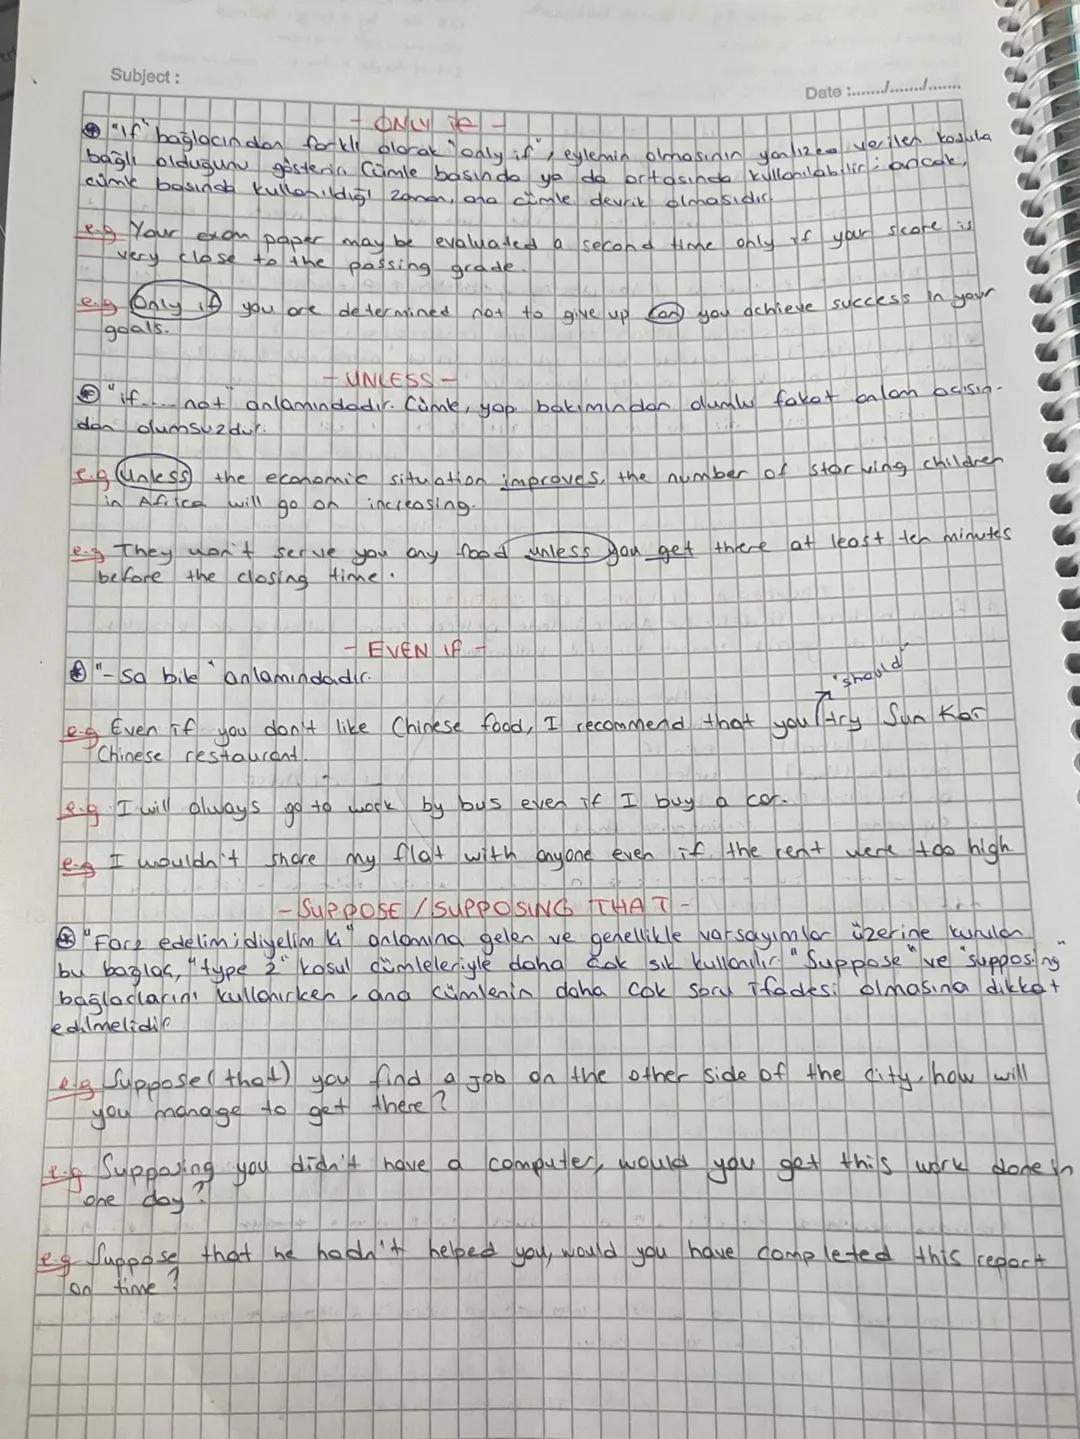 Subject :
Date :......../......../........
- ONLY if -
"If" bağlacından farklı olarak "only if", eylemin olmasının yanlızca verilen koşula
bağlı olduğunu gösterir. Cümle başında ya da ortasında kullanılabilir; ancak,
cümle başında kullanıldığı zaman, ana cümle devrik olmasıdır.
e.g Your exam paper may be evaluated a second time only if your score is
very close to the passing grade.
e.g Only if you are determined not to give up can you achieve success in your
goals.
- UNLESS -
"if.... not" anlamındadır. Cümle, yapı bakımından olumlu fakat anlam açısın-
dan olumsuzdur.
e.g Unless the economic situation improves, the number of starving children
in Africa will go on increasing.
e.g They won't serve you any food unless you get there at least ten minutes
before the closing time.
- EVEN IF -
"-sa bile" anlamındadır.
"should"
e.g Even if you don't like Chinese food, I recommend that you try Sun Kar
Chinese restaurant.
e.g I will always go to work by bus even if I buy a car.
e.g I wouldn't share my flat with anyone even if the rent were too high
- SUPPOSE / SUPPOSING THAT -
"Farz edelim; diyelim ki" anlamına gelen ve genellikle varsayımlar üzerine kurulan
bu bağlaç, "type 2" koşul cümleleriyle daha çok sık kullanılır. "Suppose" ve "supposing"
bağlaçlarını kullanırken, ana cümlenin daha çok soru ifadesi olmasına dikkat
edilmelidir
e.g Suppose (that) you find a job on the other side of the city, how will
you manage to get there?
e.g Supposing you didn't have a computer, would you get this work done in
one day?
e.g Suppose that he hadn't helped you, would you have completed this report
on time?